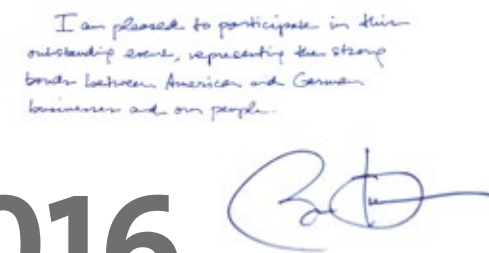 I am pleased to participate in this
outstanding event, representing the strong
bonds between American and German
businesses and our people.
016